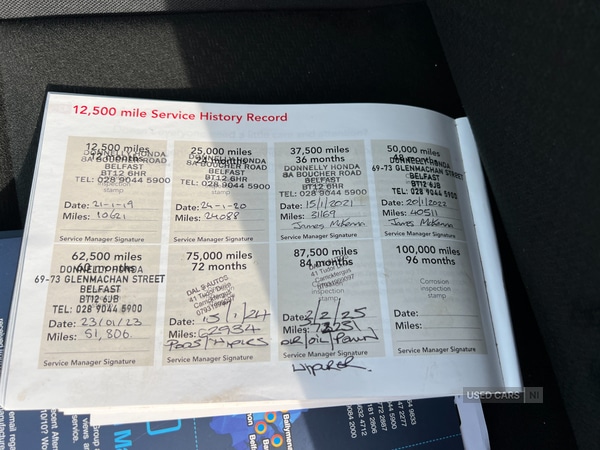 12,500 mile Service History Record
12,500 miles
12 months
DONNELLY HONDA
8A BOUCHER ROAD
BELFAST
BT12 6HR
TEL: 028 9044 5900
inspection
stamp
Date: 21-1-19
Miles: 10621
Service Manager Signature
25,000 miles
24 months
DONNELLY HONDA
8A BOUCHER ROAD
BELFAST
BT12 6HR
TEL: 028 9044 5900
stamp
Date: 24-1-20
Miles: 24088
Service Manager Signature
37,500 miles
36 months
DONNELLY HONDA
8A BOUCHER ROAD
BELFAST
BT12 6HR
TEL: 028 9044 5900
stamp
Date: 15/1/2021
Miles: 31169
James McKenna
Service Manager Signature
50,000 miles
48 months
DONNELLY HONDA
69-73 GLENMACHAN STREET
BELFAST
BT12 6JB
TEL: 028 9044 5900
Date: 20/1/2022
Miles: 40511
James McKenna
Service Manager Signature
62,500 miles
60 months
DONNELLY HONDA
69-73 GLENMACHAN STREET
BELFAST
BT12 6JB
TEL: 028 9044 5900
Date: 23/01/23
Miles: 51,806
Service Manager Signature
75,000 miles
72 months
DAL'S AUTOS
41 Tudor
Carrickfergus
Date: 15/1/24
Miles: 62934
Service Manager Signature
87,500 miles
84 months
41 Tudor
Carrickfergus
Date: 2/2/25
Miles:
OIL/OIL/
Service Manager Signature
100,000 miles
96 months
Corrosion
inspection
stamp
Date:
Miles:
Service Manager Signature
USED CARS NI